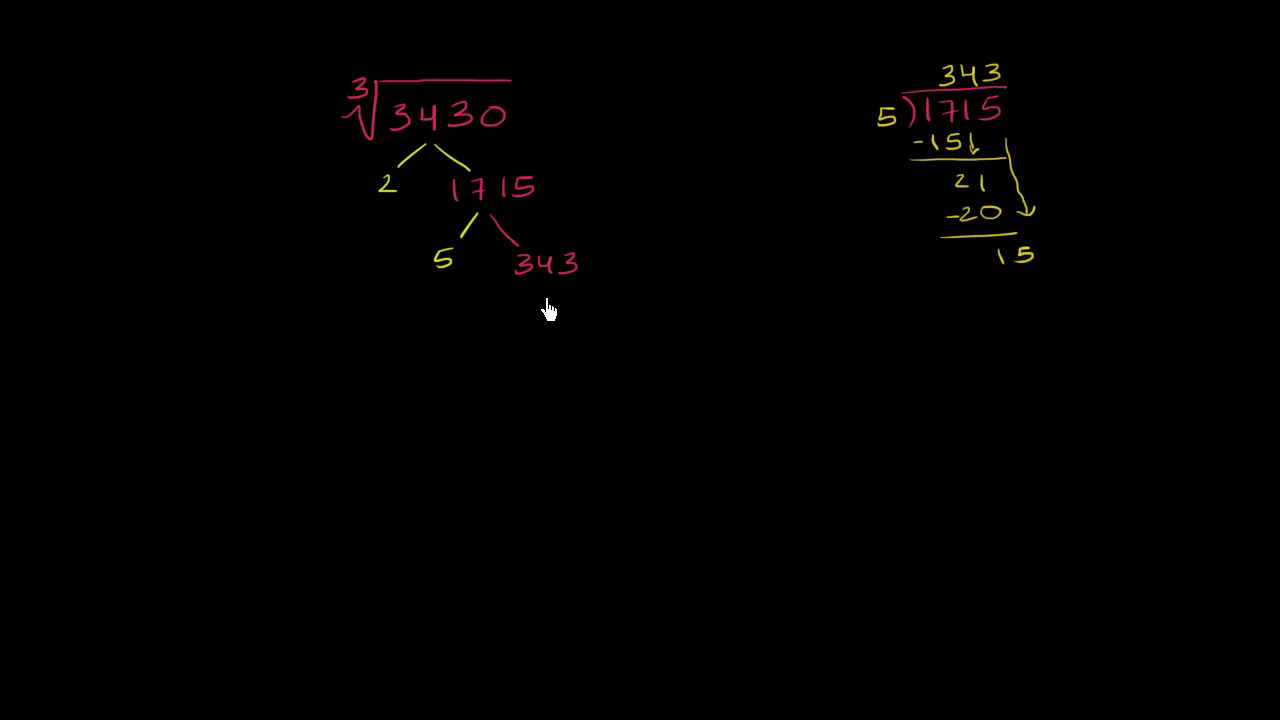 ∛3430
2 1715
5 343
343
5)1715
-151
21
-20
15